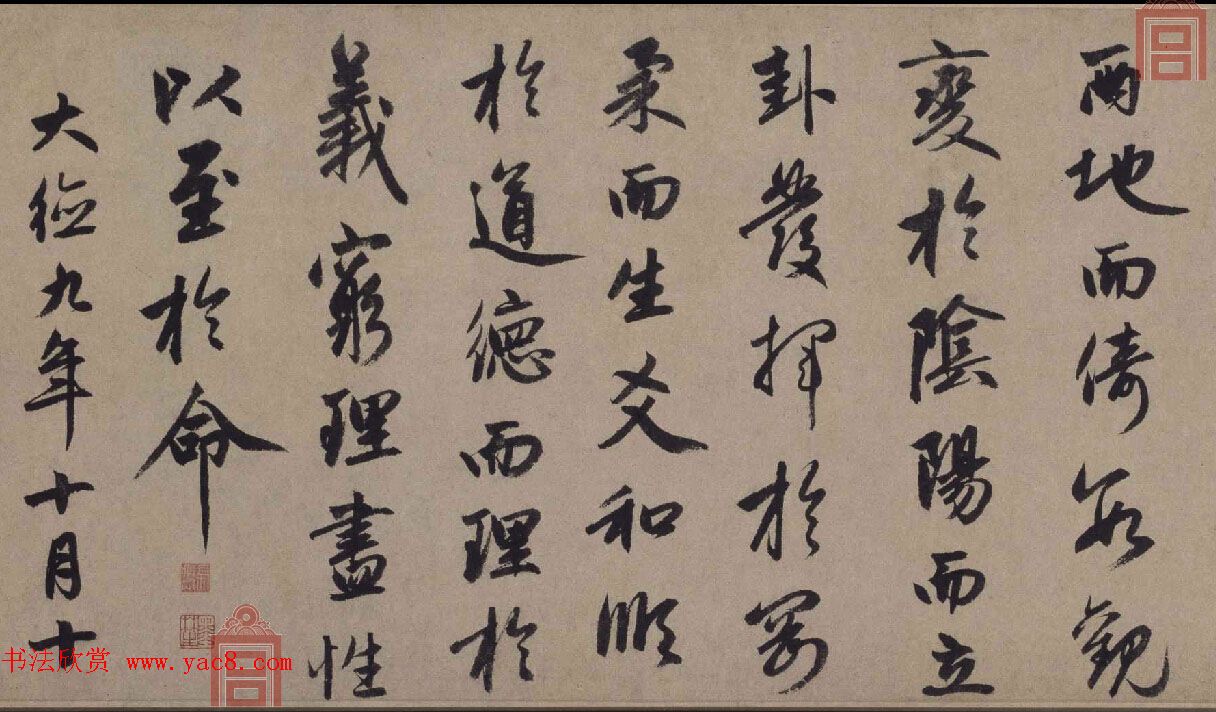 兩地而倚數觀
變於陰陽而立
卦發揮於剛
柔而生爻和順
於道德而理於
義窮理盡性
以至於命
大德九年十月十
书法欣赏 www.yac8.com